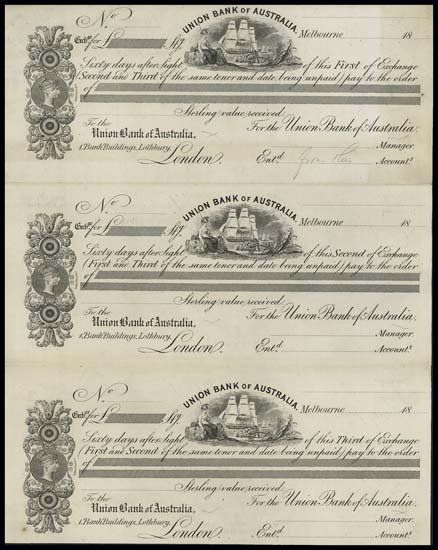 No
UNION BANK OF AUSTRALIA.
Melbourne 18
Exche. for £
Sixty days after Sight of this First of Exchange
(Second and Third of the same tenor and date being unpaid) pay to the order
of
Sterling value received
To the For the Union Bank of Australia.
Union Bank of Australia,
1, Bank Buildings, Lothbury, Manager.
London. Entd. Accountt.
No
UNION BANK OF AUSTRALIA.
Melbourne 18
Exche. for £
Sixty days after Sight of this Second of Exchange
(First and Third of the same tenor and date being unpaid) pay to the order
of
Sterling value received
To the For the Union Bank of Australia.
Union Bank of Australia,
1, Bank Buildings, Lothbury, Manager.
London. Entd. Accountt.
No
UNION BANK OF AUSTRALIA.
Melbourne 18
Exche. for £
Sixty days after Sight of this Third of Exchange
(First and Second of the same tenor and date being unpaid) pay to the order
of
Sterling value received
To the For the Union Bank of Australia.
Union Bank of Australia,
1, Bank Buildings, Lothbury, Manager.
London. Entd. Accountt.